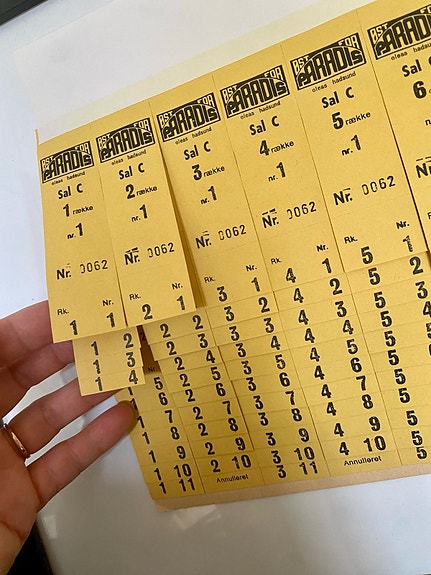 ØST FOR
PARADIS
oleas hadsund
Sal C
1 række
nr. 1
Nr. 0062
Rk. Nr.
1 1
1 2
1 3
1 4
5
6
1 7
1 8
1 9
1 10
1 11
ØST FOR
PARADIS
oleas hadsund
Sal C
2 række
nr. 1
Nr. 0062
Rk. Nr.
2 1
2 2
2 3
2 4
2 5
2 6
2 7
2 8
2 9
2 10
Annulleret
ØST FOR
PARADIS
oleas hadsund
Sal C
3 række
nr. 1
Nr. 0062
Rk. Nr.
3 1
3 2
3 3
3 4
3 5
3 6
3 7
3 8
3 9
3 10
3 11
ØST FOR
PARADIS
oleas hadsund
Sal C
4 række
nr. 1
Nr. 0062
Rk. Nr.
4 1
4 2
4 3
4 4
4 5
4 6
4 7
4 8
4 9
4 10
Annulleret
ØST FOR
PARADIS
oleas hadsund
Sal C
5 række
nr. 1
Nr. 0062
Rk. Nr.
5 1
5 2
5 3
5
5
5
5
5
5
ØST FOR
Sal C
6
nr.
Nr.